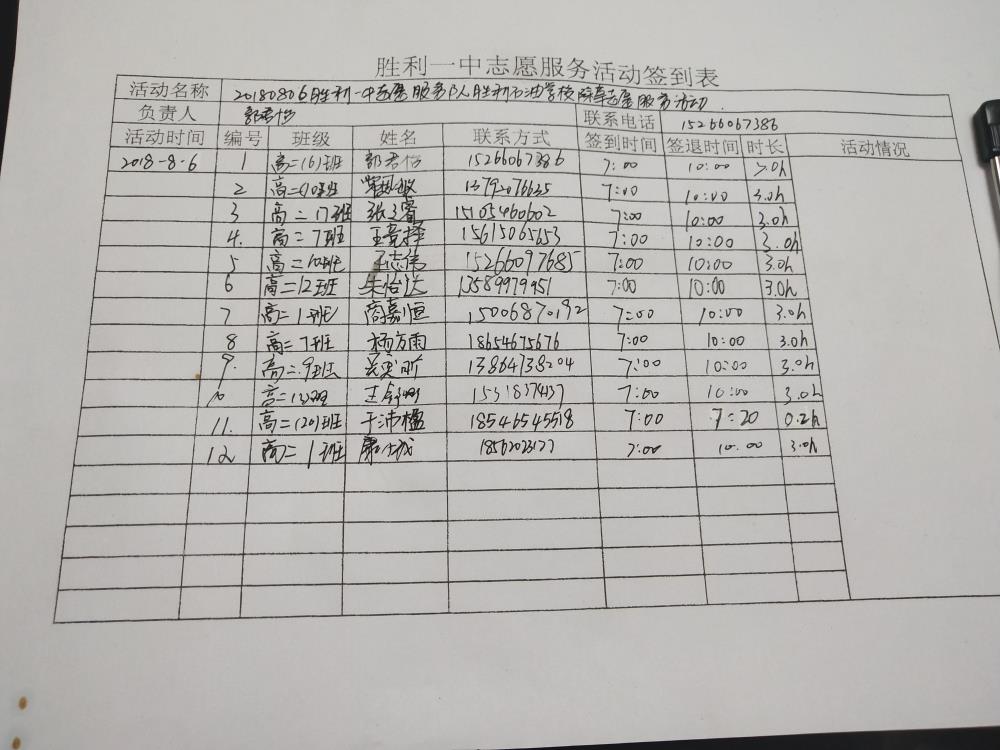 胜利一中志愿服务活动签到表
活动名称 20180806胜利一中志愿服务队胜利石油学校除草志愿服务活动
负责人 联系电话 15266067386
活动时间 编号 班级 姓名 联系方式 签到时间 签退时间 时长 活动情况
2018-8-6 1 高二(6)班 15266067386 7:00 10:00 3.0h
2 高二(10)班 7:00 10:00 3.0h
3 高二17班 15105460602 7:00 10:00 3.0h
4. 高二7班 王竞择 15615065653 7:00 10:00 3.0h
5 高二10班 王志伟 15266097685 7:00 10:00 3.0h
6 高二12班 朱怡达 13589979951 7:00 10:00 3.0h
7 高二1班 商嘉恒 15006870192 7:00 10:00 3.0h
8 高二7班 杨方雨 18654675676 7:00 10:00 3.0h
9. 高二.9班 13864738204 7:00 10:00 3.0h
10 高二13班 7:00 10:00 3.0h
11. 高二(20)班 于沛楹 18546545518 7:00 7:20 0.2h
12 高二1班 7:00 10:00 3.0h